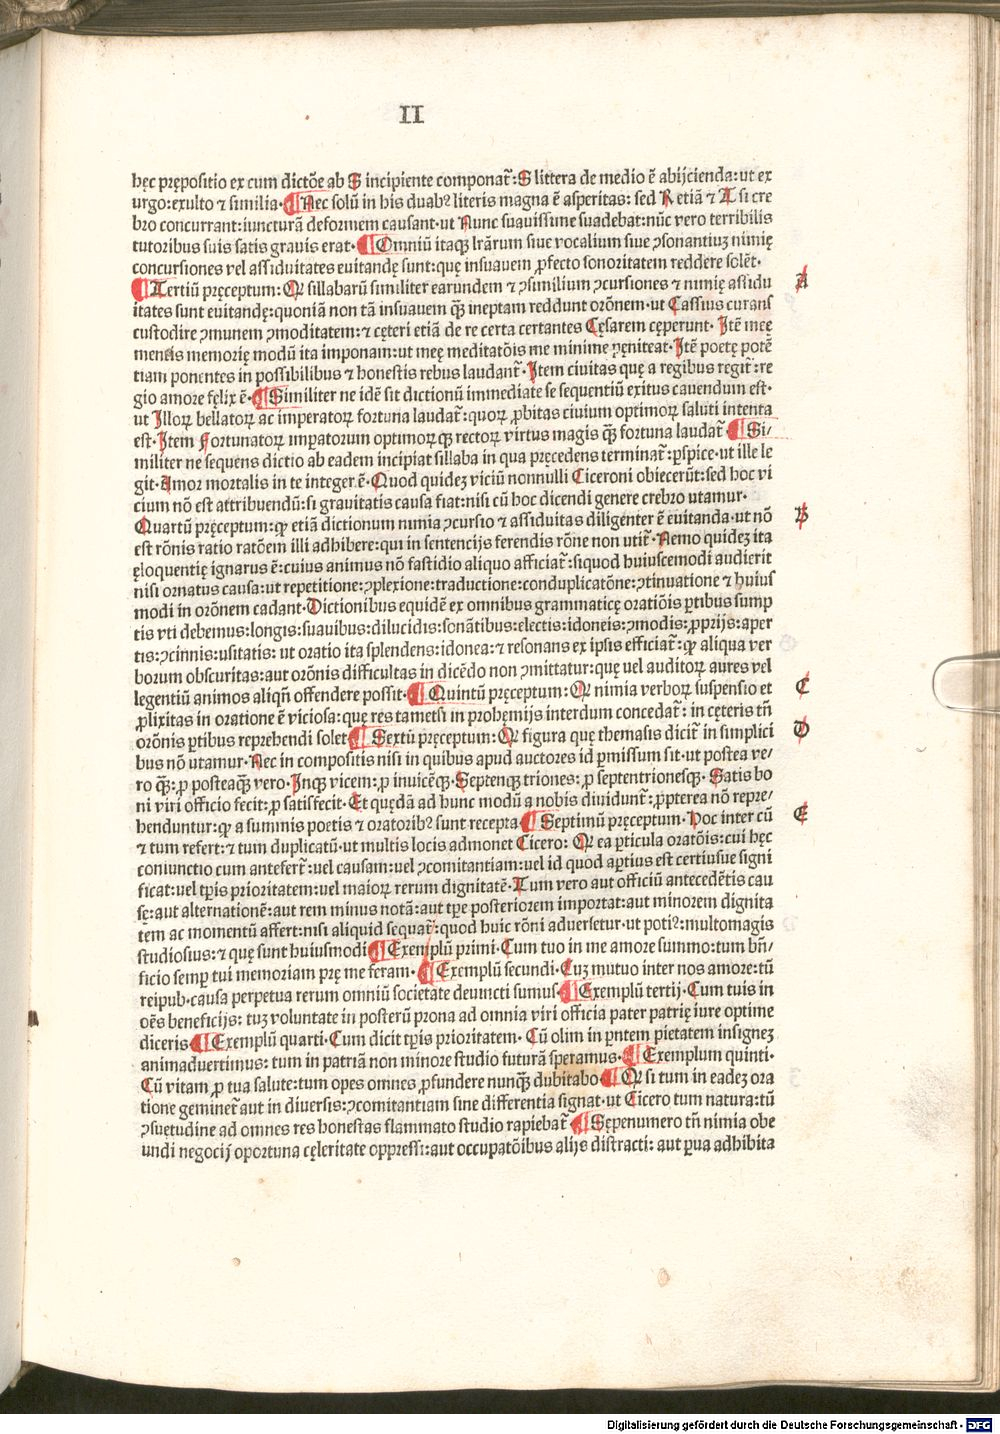 II
hęc prępositio ex cum dictõe ab S incipiente componat᷑: S littera de medio ē abijcienda: ut ex
urgo: exulto ⁊ similia· ¶ Nec solū in his duabꝰ literis magna ē asperitas: sed R etiā ⁊ A si cre
bro concurrant: iuncturā deformem causant· ut Nunc suauissime suadebat: nūc vero terribilis
tutoribus suis satis grauis erat· ¶ Omniū itaqꝫ lr̄arum siue vocalium siue ꝯsonantiuꝫ nimię
concursiones vel assiduitates euitandę sunt: quę insuauem ꝓfecto sonoritatem reddere solēt·
¶ Tertiū pręceptum: Qꝛ sillabarū similiter earundem ⁊ ꝯsimilium ꝯcursiones ⁊ nimię assidu
A
itates sunt euitandę: quoniā non tā insuauem qꝫ̄ ineptam reddunt orōnem· ut Cassius curans
custodire ꝯmunem ꝯmoditatem: ⁊ cęteri etiā de re certa certantes Cęsarem cęperunt· Itē meę
mentis memorię modū ita imponam: ut meę meditatōis me minime pęniteat· Itē poetę potē
tiam ponentes in possibilibus ⁊ honestis rebus laudant᷑· Item ciuitas quę a regibus regit᷑: re
gio amore fęlix ē· ¶ Similiter ne idē sit dictionū immediate se sequentiū exitus cauendum est·
ut Illoꝝ bellatoꝝ ac imperatoꝝ fortuna laudat᷑: quoꝝ ꝓbitas ciuium optimoꝝ saluti intenta
est· Item Fortunatoꝝ imꝑatorum optimoꝝqꝫ rectoꝝ virtus magis qꝫ̄ fortuna laudat᷑ ¶ Si/
militer ne sequens dictio ab eadem incipiat sillaba in qua pręcedens terminat᷑: ꝑspice· ut ille le
git· Amor mortalis in te integer ē· Quod quideꝫ viciū nonnulli Ciceroni obiecerūt: sed hoc vi
cium nō est attribuendū: si grauitatis causa fiat: nisi cū hoc dicendi genere crebro utamur·
Quartū pręceptum: ꝙ etiā dictionum nimia ꝯcursio ⁊ assiduitas diligenter ē euitanda· ut nō
B
est rōnis ratio ratōem illi adhibere: qui in sentencijs ferendis rōne non utit᷑· Nemo quideꝫ ita
ęloquentię ignarus ē: cuius animus nō fastidio aliquo afficiat᷑: siquod huiuscemodi audierit
nisi ornatus causa: ut repetitione: ꝯplexione: traductione: conduplicatōne: ꝯtinuatione ⁊ huius
modi in orōnem cadant· Dictionibus equidē ex omnibus grammaticę oratiōis ꝑtibus sump
tis vti debemus: longis: suauibus: dilucidis: sonātibus: electis: idoneis: ꝯmodis: ꝓprijs: aper
tis: ꝯcinnis: usitatis: ut oratio ita splendens: idonea: ⁊ resonans ex ipsis efficiat᷑: ꝙ aliqua ver
borum obscuritas: aut orōnis difficultas in dicēdo non ꝯmittatur: quę uel auditoꝝ aures vel
legentiū animos aliqn̄ offendere possit· ¶ Quintū pręceptum: Qꝛ nimia verboꝝ suspensio et
C
ꝓlixitas in oratione ē viciosa: quę res tametsi in prohęmijs interdum concedat᷑: in cęteris tn̄
orōnis ꝑtibus reprehendi solet ¶ Sextū pręceptum: Qꝛ figura quę themasis dicit᷑ in simplici
D
bus nō utamur· Nec in compositis nisi in quibus apud auctores id ꝑmissum sit· ut postea ve/
ro qꝫ̄: ꝓ posteaqꝫ̄ vero· Inqꝫ vicem: ꝓ inuicēqꝫ· Septenqꝫ triones: ꝓ septentrionesqꝫ· Satis bo
ni viri officio fecit: ꝓ satisfecit· Et quędā ad hunc modū a nobis diuidunt᷑: ꝓpterea nō repre/
henduntur: ꝙ a summis poetis ⁊ oratoribꝰ sunt recepta ¶ Septimū pręceptum· Hoc inter cū
E
⁊ tum refert: ⁊ tum duplicatū· ut multis locis admonet Cicero: Qꝛ ea ꝑticula oratōis: cui hęc
coniunctio cum antefert᷑: uel causam: uel ꝯcomitantiam: uel id quod aptius est certiusue signi
ficat: uel tꝑis prioritatem: uel maioꝝ rerum dignitatē· Tum vero aut officiū antecedētis cau
sę: aut alternationē: aut rem minus notā: aut tꝑe posteriorem importat: aut minorem dignita
tem ac momentū affert: nisi aliquid sequat᷑: quod huic rōni aduersetur· ut potiꝰ: multomagis
studiosius: ⁊ quę sunt huiusmodi ¶ Exemplū primi· Cum tuo in me amore summo: tum bn̄/
ficio semꝑ tui memoriam prę me feram· ¶ Exemplū secundi· Cuꝫ mutuo inter nos amore: tū
reipub· causa perpetua rerum omniū societate deuincti sumus· ¶ Exemplū tertij· Cum tuis in
oēs beneficijs: tuꝫ voluntate in posterū prona ad omnia viri officia pater patrię iure optime
diceris ¶ Exemplū quarti· Cum dicit tꝑis prioritatem· Cū olim in pn̄tem pietatem insigneꝫ
animaduertimus: tum in patriā non minore studio futurā speramus· ¶ Exemplum quinti·
Cū vitam ꝓ tua salute: tum opes omnes ꝓfundere nunqꝫ̄ dubitabo ¶ Qꝛ si tum in eadeꝫ ora
tione geminet᷑ aut in diuersis: ꝯcomitantiam sine differentia signat· ut Cicero tum natura: tū
ꝯsuetudine ad omnes res honestas flammato studio rapiebat᷑ ¶ Sępenumero tn̄ nimia obe
undi negocij oportuna cęleritate oppressi: aut occupatōibus alijs distracti: aut ꝑua adhibita
Digitalisierung gefördert durch die Deutsche Forschungsgemeinschaft - DFG